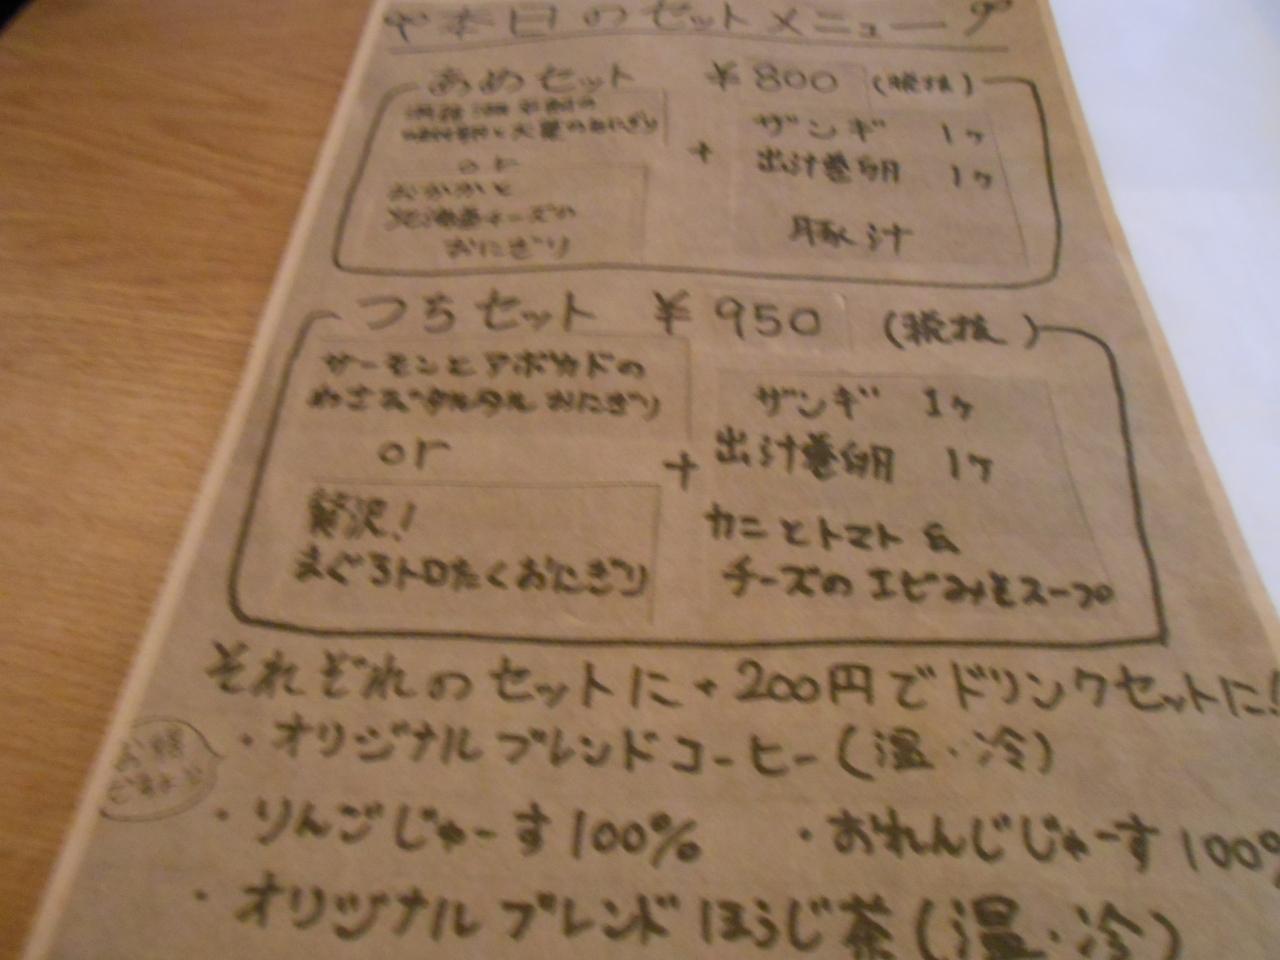 本日のセットメニュー
あめセット ¥800 (税抜)
大葉のおにぎり
or
おかかと
北海道チーズの
おにぎり
+
ザンギ 1ヶ
出汁巻卵 1ヶ
豚汁
つちセット ¥950 (税抜)
サーモンとアボカドの
わさびタルタルおにぎり
or
贅沢!
まぐろトロたくおにぎり
+
ザンギ 1ヶ
出汁巻卵 1ヶ
カニとトマト &
チーズのエビみそスープ
それぞれのセットに+200円でドリンクセットに!
・オリジナルブレンドコーヒー(温・冷)
・りんごじゅーす100% ・おれんじじゅーす100%
・オリジナルブレンドほうじ茶(温・冷)